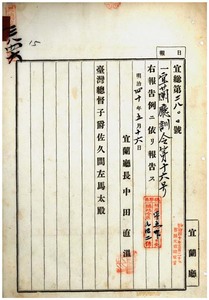 日報
宜總第三八〇號
一宜蘭廳訓令第十六號
右報告例ニ依リ報告ス
明治四十年五月十六日
宜蘭廳長中田直溫
臺灣總督子爵佐久間左馬太殿
宜蘭廳
15